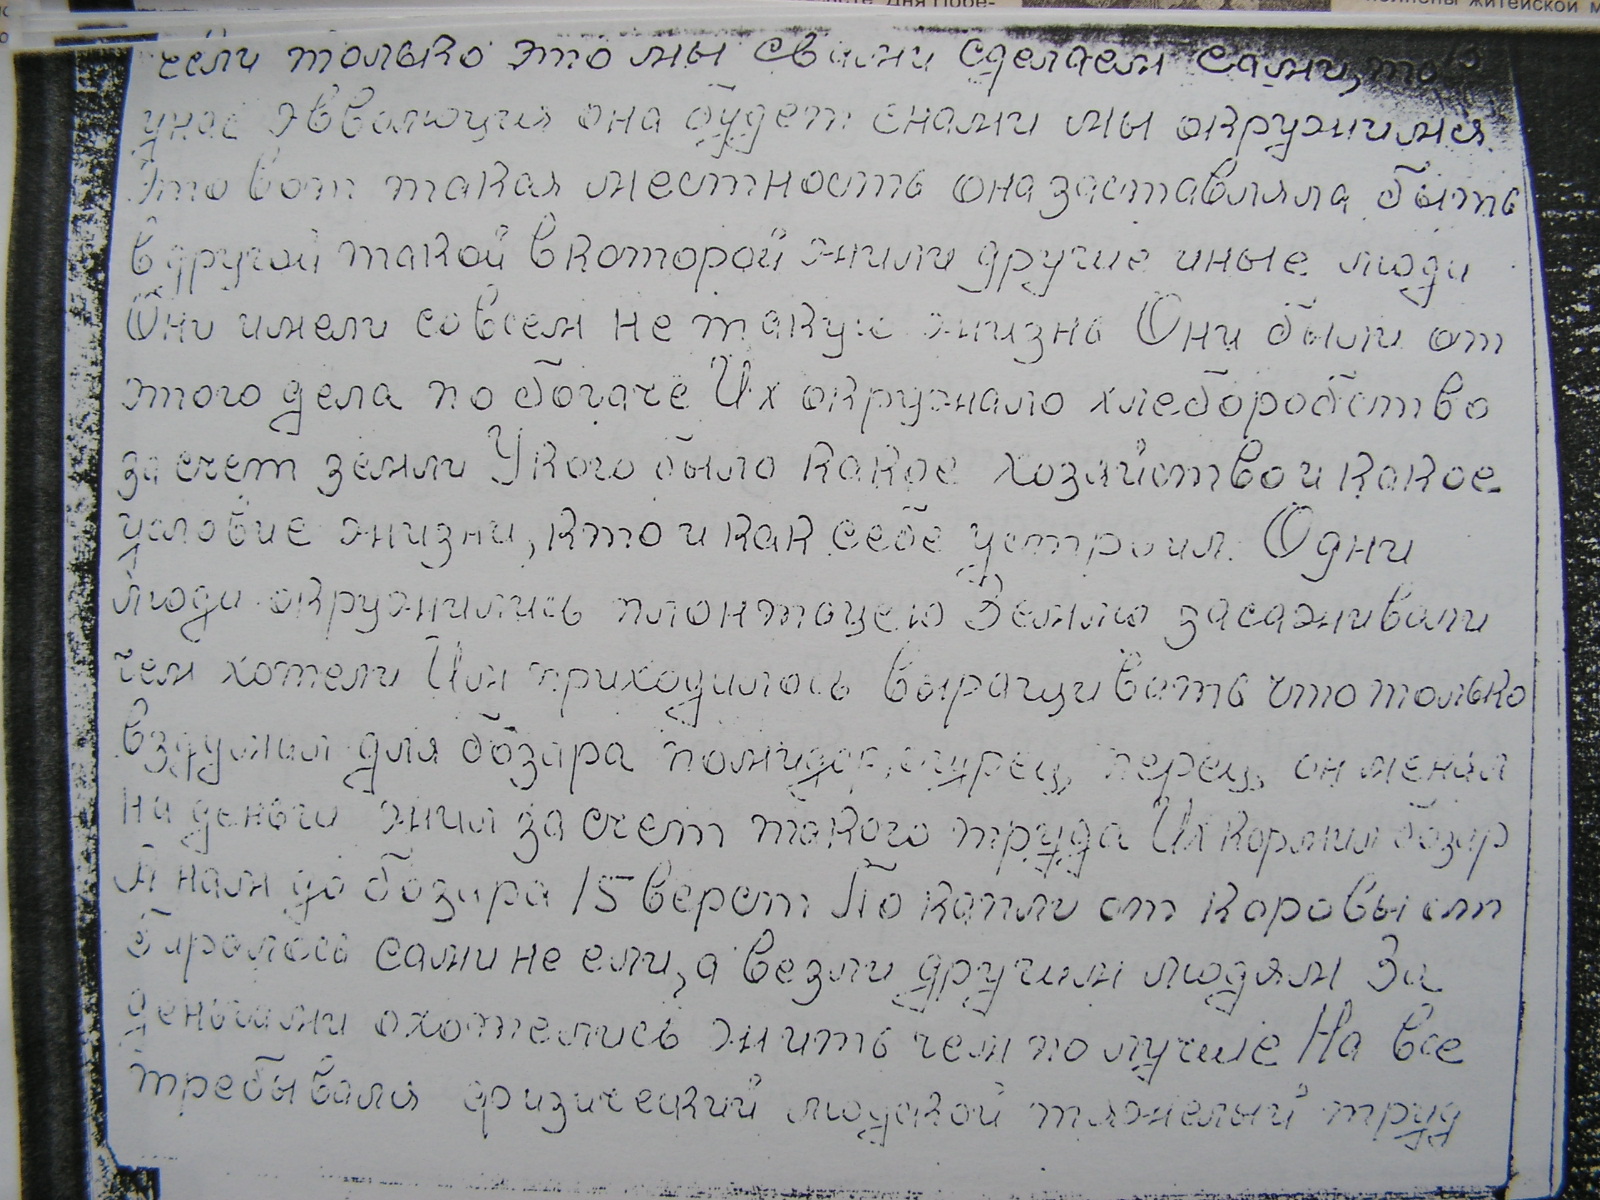 если только это мы свами сделаем сами, то
унас эвволюция она будет снами мы окружимся.
Это вот такая местность она заставляла быть
в другой такой вкоторой жили другие иные люди
Они имели совсем не такую жизнь Они были от
этого дела по богаче Их окружало хлеборобство
за счет земли Укого было какое хозяйство и какое
условие жизни, кто и как себе устроил. Одни
люди окружились плонтоцею Землю засаживали
чем хотели Им приходилось выращивать что только
вздумал для бозара помидор, огурец, перец, он менял
на деньги жил за счет такого труда Их кормил бозар
А нам до бозара 15 верст По капли от коровы от
биралось сами не ели, а везли другим людям За
деньгами охотелись жить чем по лучше На все
требывался физический людской тяжелый труд